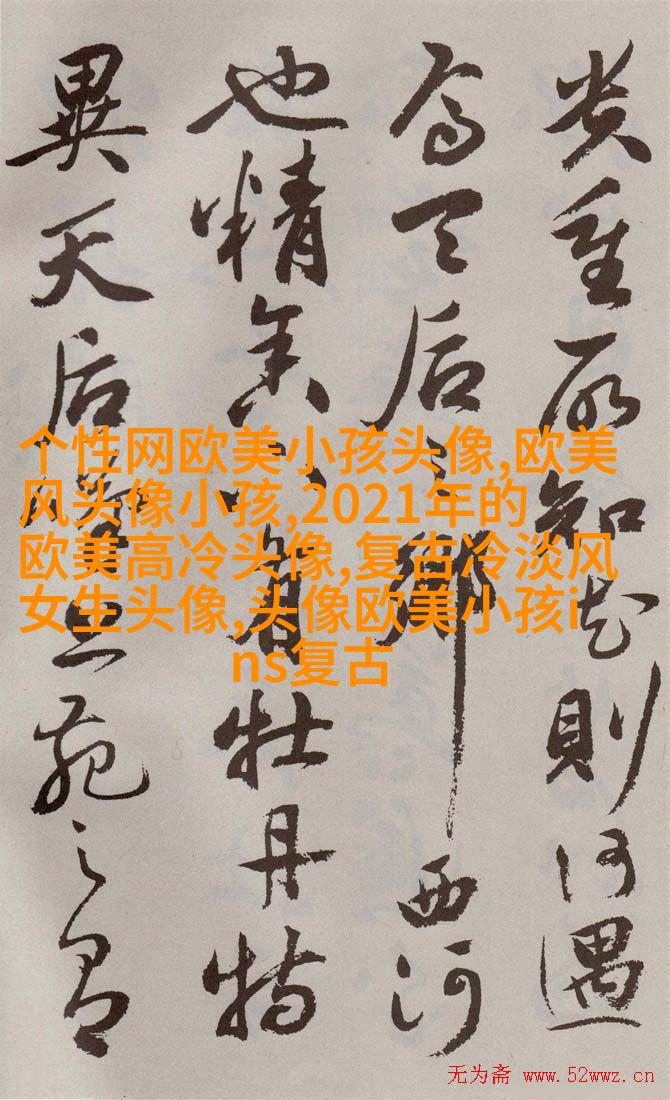 贵重所知花則何遇
焉天后之鄉西河
也精舍下有牡丹特
異天后嘆上苑之有
个性网欧美小孩头像,欧美
风头像小孩,2021年的
欧美高冷头像,复古冷淡风
女生头像,头像欧美小孩i
ns复古
无为斋 www.52wwz.cn